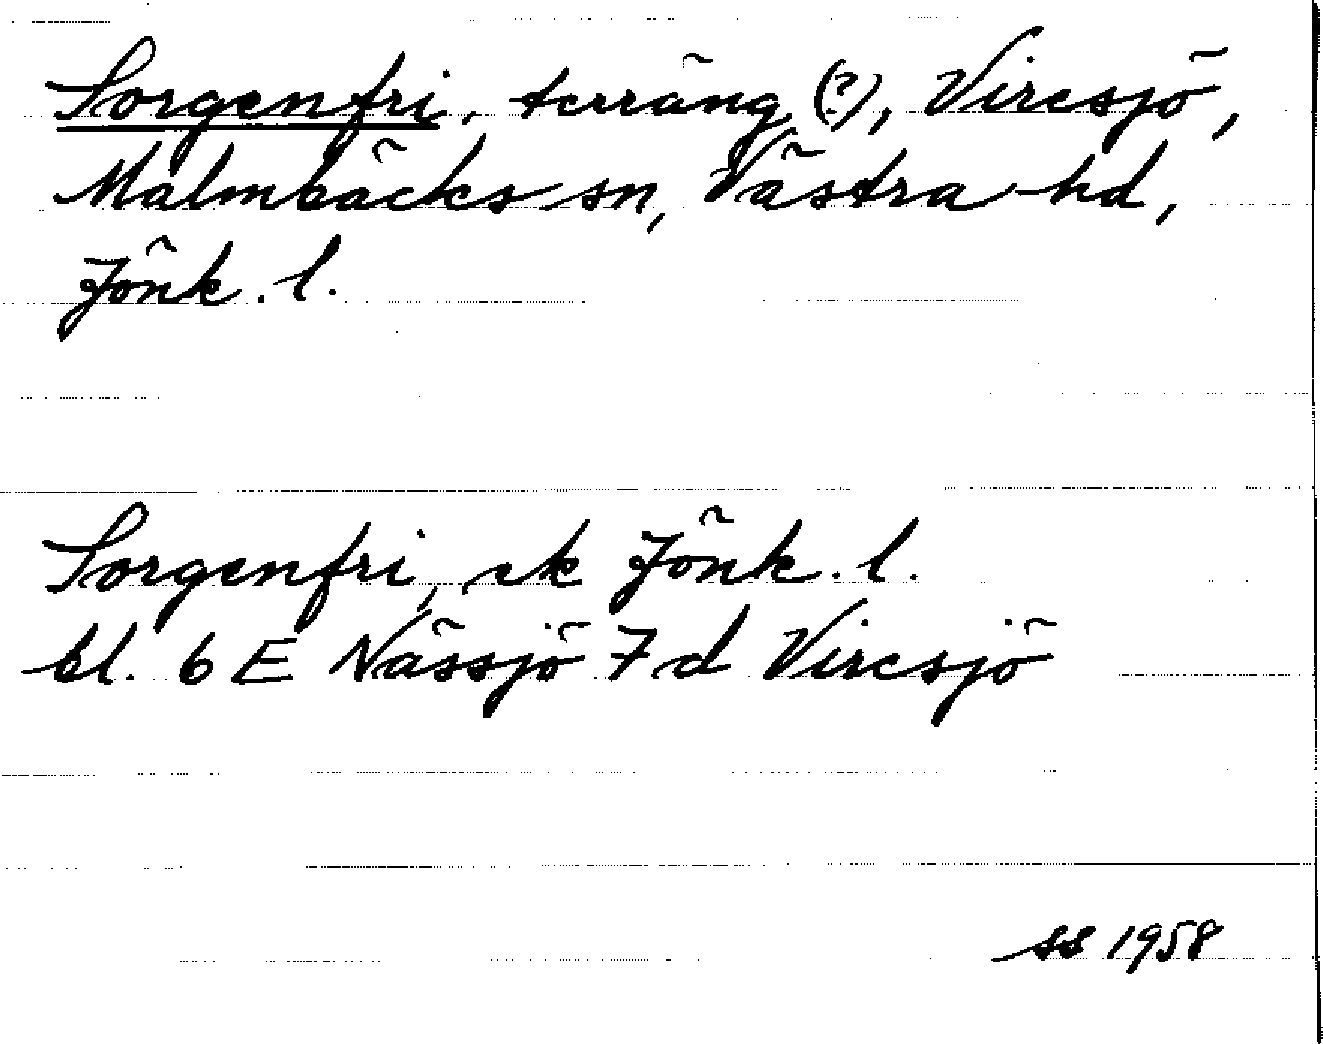 Sorgenfri, terräng (?), Viresjö,
Malmbäcks sn, Västra hd,
Jönk. l.
Sorgenfri, ek Jönk. l.
bl. 6 E Nässjö 7 d Viresjö
ss 1958